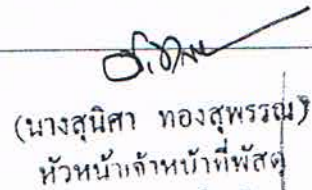 (นางสุนิศา ทองสุพรรณ)
หัวหน้าเจ้าหน้าที่พัสดุ